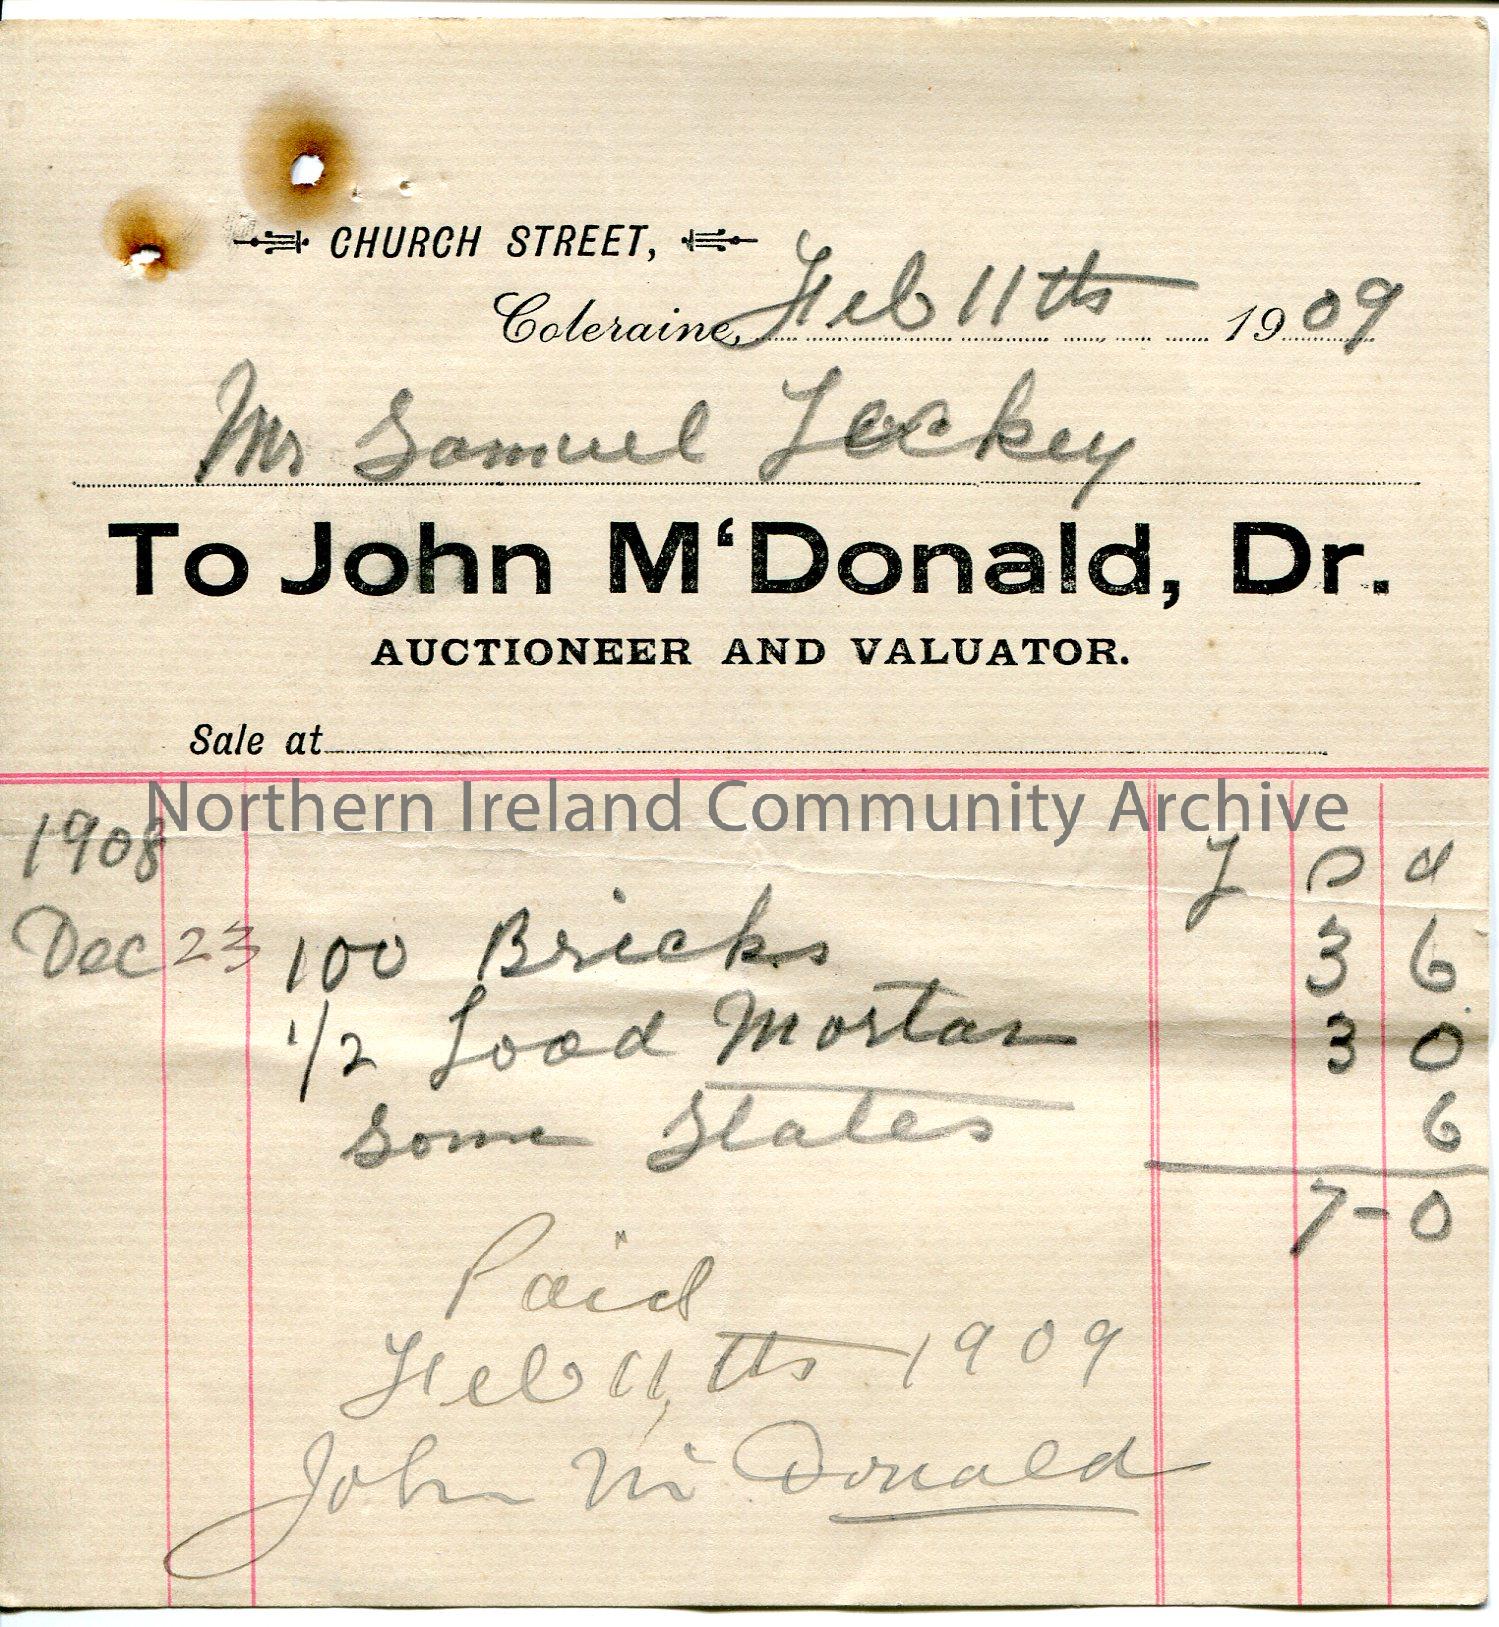 CHURCH STREET,
Coleraine, Feb 11th 1909
Mr Samuel Lockey
To John M'Donald, Dr.
AUCTIONEER AND VALUATOR.
Sale at
Northern Ireland Community Archive
1908 £ s d
Dec 23 100 Bricks 3 6
1/2 Load Mortar 3 0
Some Slates 6
7-0
Paid
Feb 11th 1909
John McDonald